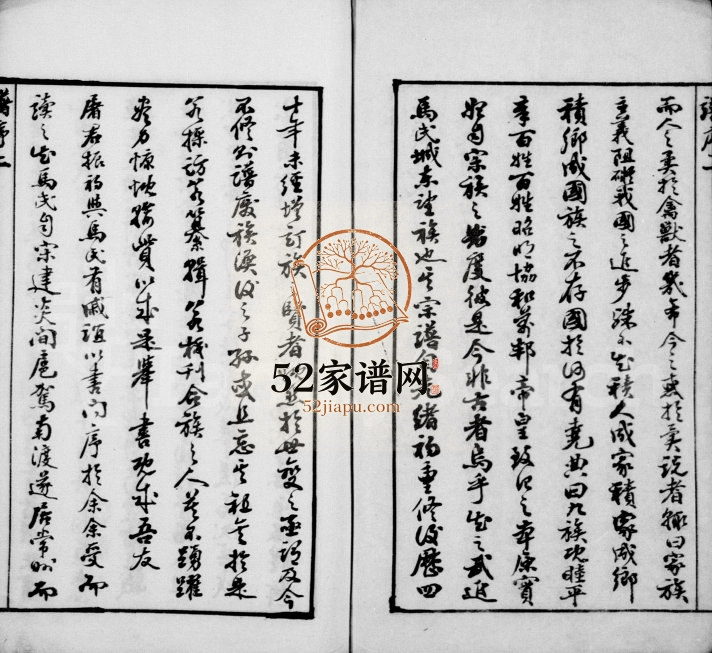 譜序二
而人之異於禽獸者幾希今之惑於異說者輒曰家族
主義阻礙我國之進步殊不知積人成家積家成鄉
積鄉成國族之不存國於何有堯典曰九族既睦平
章百姓百姓昭明協和萬邦帝皇致治之本原實
始自宗族之
度彼是今非古者烏乎知之武進
馬氏城東望族也其宗譜自光緒初重修後歷四
十年未經增訂族
賢者
於世變之亟謂及今
不修則譜廢族渙後之子孫或且忘其祖矣於是
若採訪若纂輯若校刊合族之人莫不踴躍
盡力慷慨輸貲以成是舉書既成吾友
屠君振初與馬氏有戚誼以書問序於余余受而
讀之知馬氏自宋建炎間扈駕南渡遂居常州而
譜序二
52家谱网
52jiapu.com